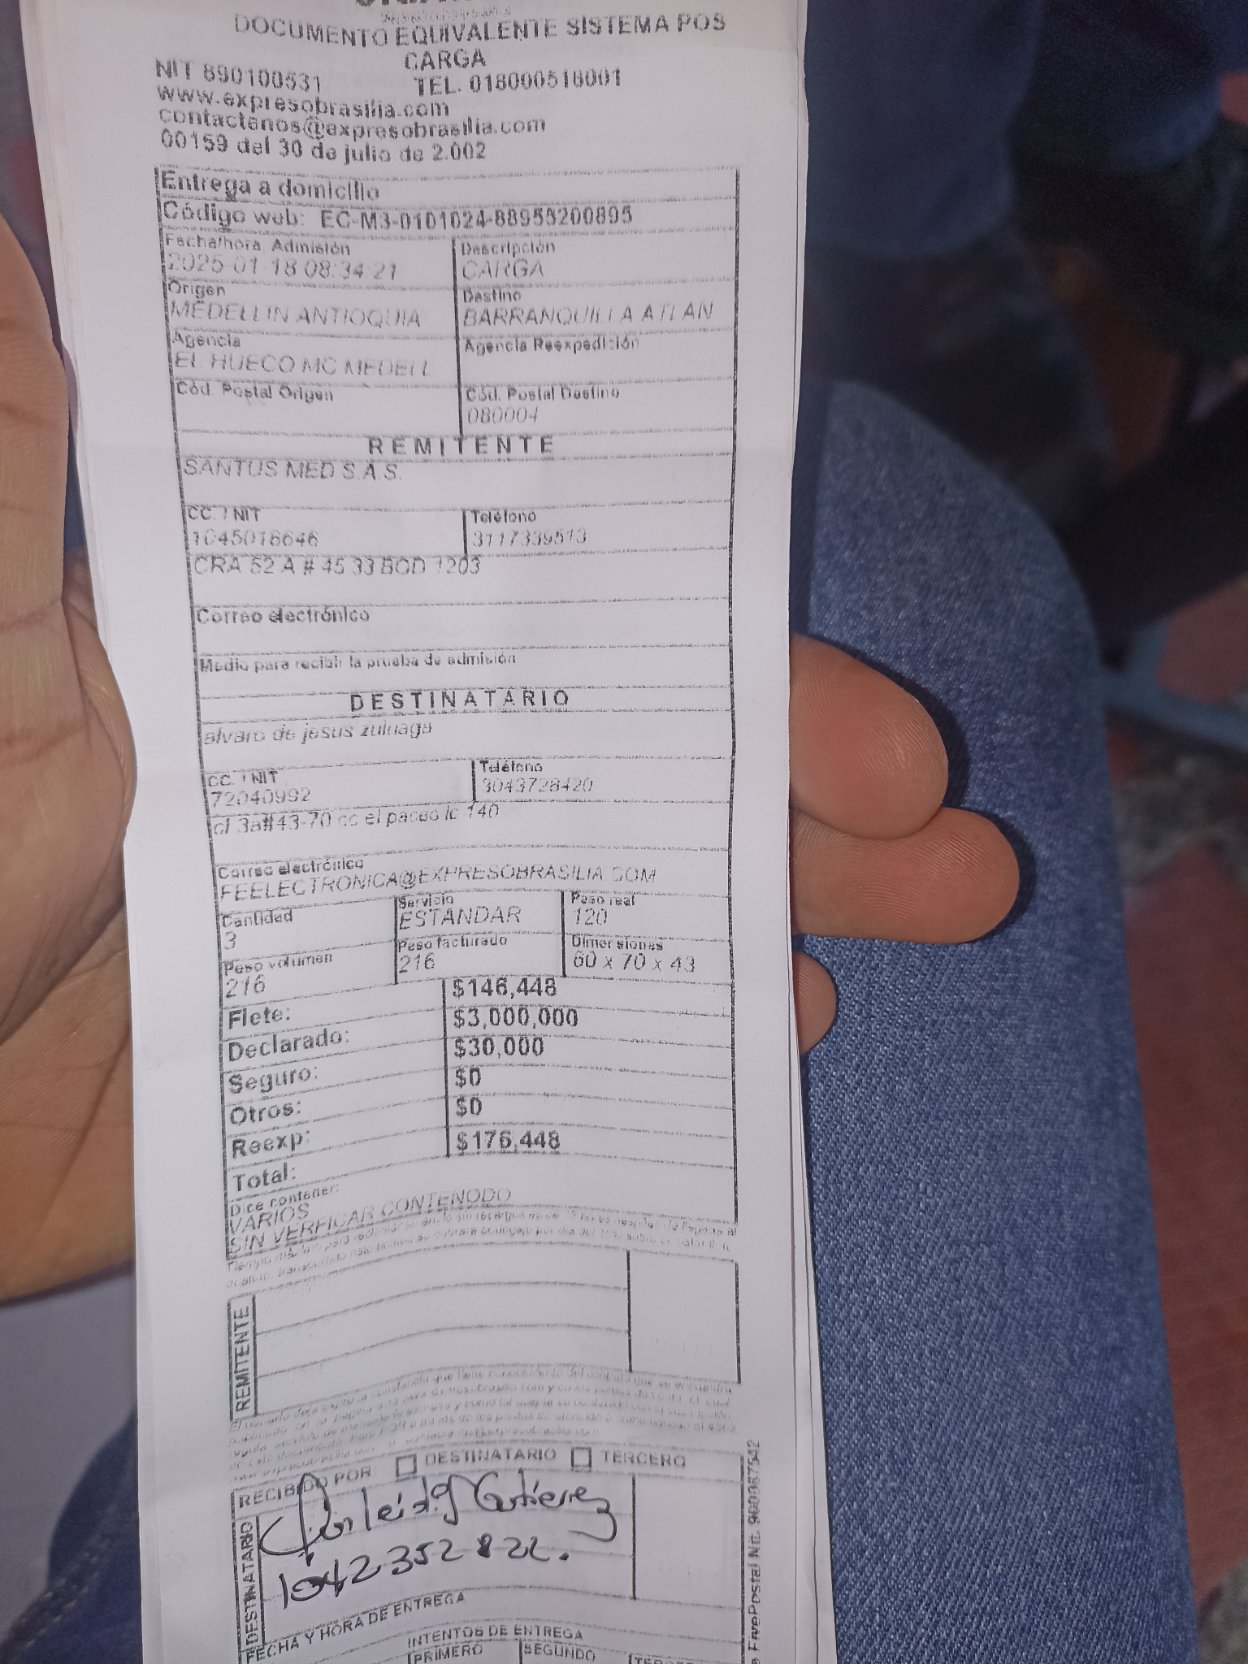 DOCUMENTO EQUIVALENTE SISTEMA POS
CARGA
NIT 890100531 TEL. 018000518001
www.expresobrasilia.com
contactenos@expresobrasilia.com
00159 del 30 de julio de 2.002
Entrega a domicilio
Código web: EC-M3-0101024-88955200895
Fecha/hora Admisión Descripción
2025-01-18 08:34:21 CARGA
Origen Destino
MEDELLIN ANTIOQUIA BARRANQUILLA ATLAN
Agencia Agencia Reexpedición
EL HUECO MC MEDELL
Cód. Postal Origen Cód. Postal Destino
080004
REMITENTE
SANTUS MED S.A.S.
CC. / NIT Teléfono
1045018646 3117339513
CRA 52 A # 45 33 BOD 1203
Correo electrónico
Medio para recibir la prueba de admisión
DESTINATARIO
alvaro de jesus zuluaga
CC. / NIT Teléfono
72040992 3043728420
cl 3a#43-70 cc el paseo lc 140
Correo electrónico
FEELECTRONICA@EXPRESOBRASILIA.COM
Cantidad Servicio Peso real
3 ESTANDAR 120
Peso volumen Peso facturado Dimensiones
216 216 60 x 70 x 43
Flete: $146,448
Declarado: $3,000,000
Seguro: $30,000
Otros: $0
Reexp: $0
Total: $176,448
Dice contener:
VARIOS
SIN VERFICAR CONTENODO
REMITENTE
RECIBIDO POR DESTINATARIO TERCERO
DESTINATARIO
Gutierrez
1042352822.
FECHA Y HORA DE ENTREGA
INTENTOS DE ENTREGA
PRIMERO SEGUNDO
FivePostal Nit. 900987542